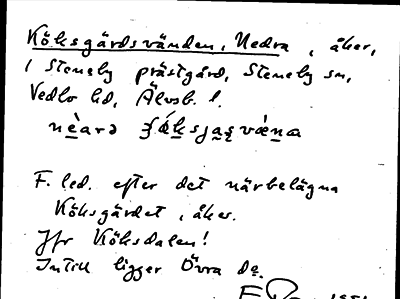 Köksgärdsvänden, Nedra, åker,
i Steneby prästgård, Steneby sn,
Vedbo hd, Älvsb. l.
F. led. efter det närbelägna
Köksgärdet, åker.
Jfr Köksdalen!
Intill ligger Övra Do.